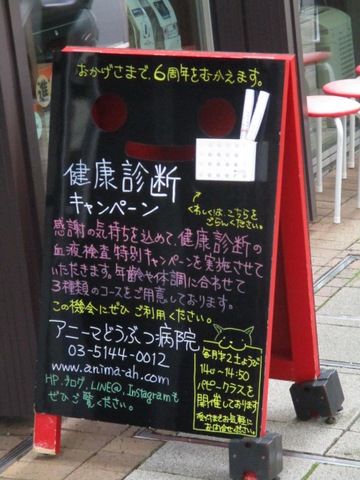 おかげさまで、6周年をむかえます。
健康診断
キャンペーン
くわしくは、こちらを
ごらんください。
感謝の気持ちを込めて、健康診断の
血液検査特別キャンペーンを実施させて
いただきます。年齢や体調に合わせて
3種類のコースをご用意しております。
この機会にぜひご利用ください。
アニーマどうぶつ病院
03-5144-0012
www.anima-ah.com
HP、ブログ、LINE@、Instagramも
ぜひご覧ください。
毎月第2土ようび
14:00～14:50
パピークラスを
開催しております